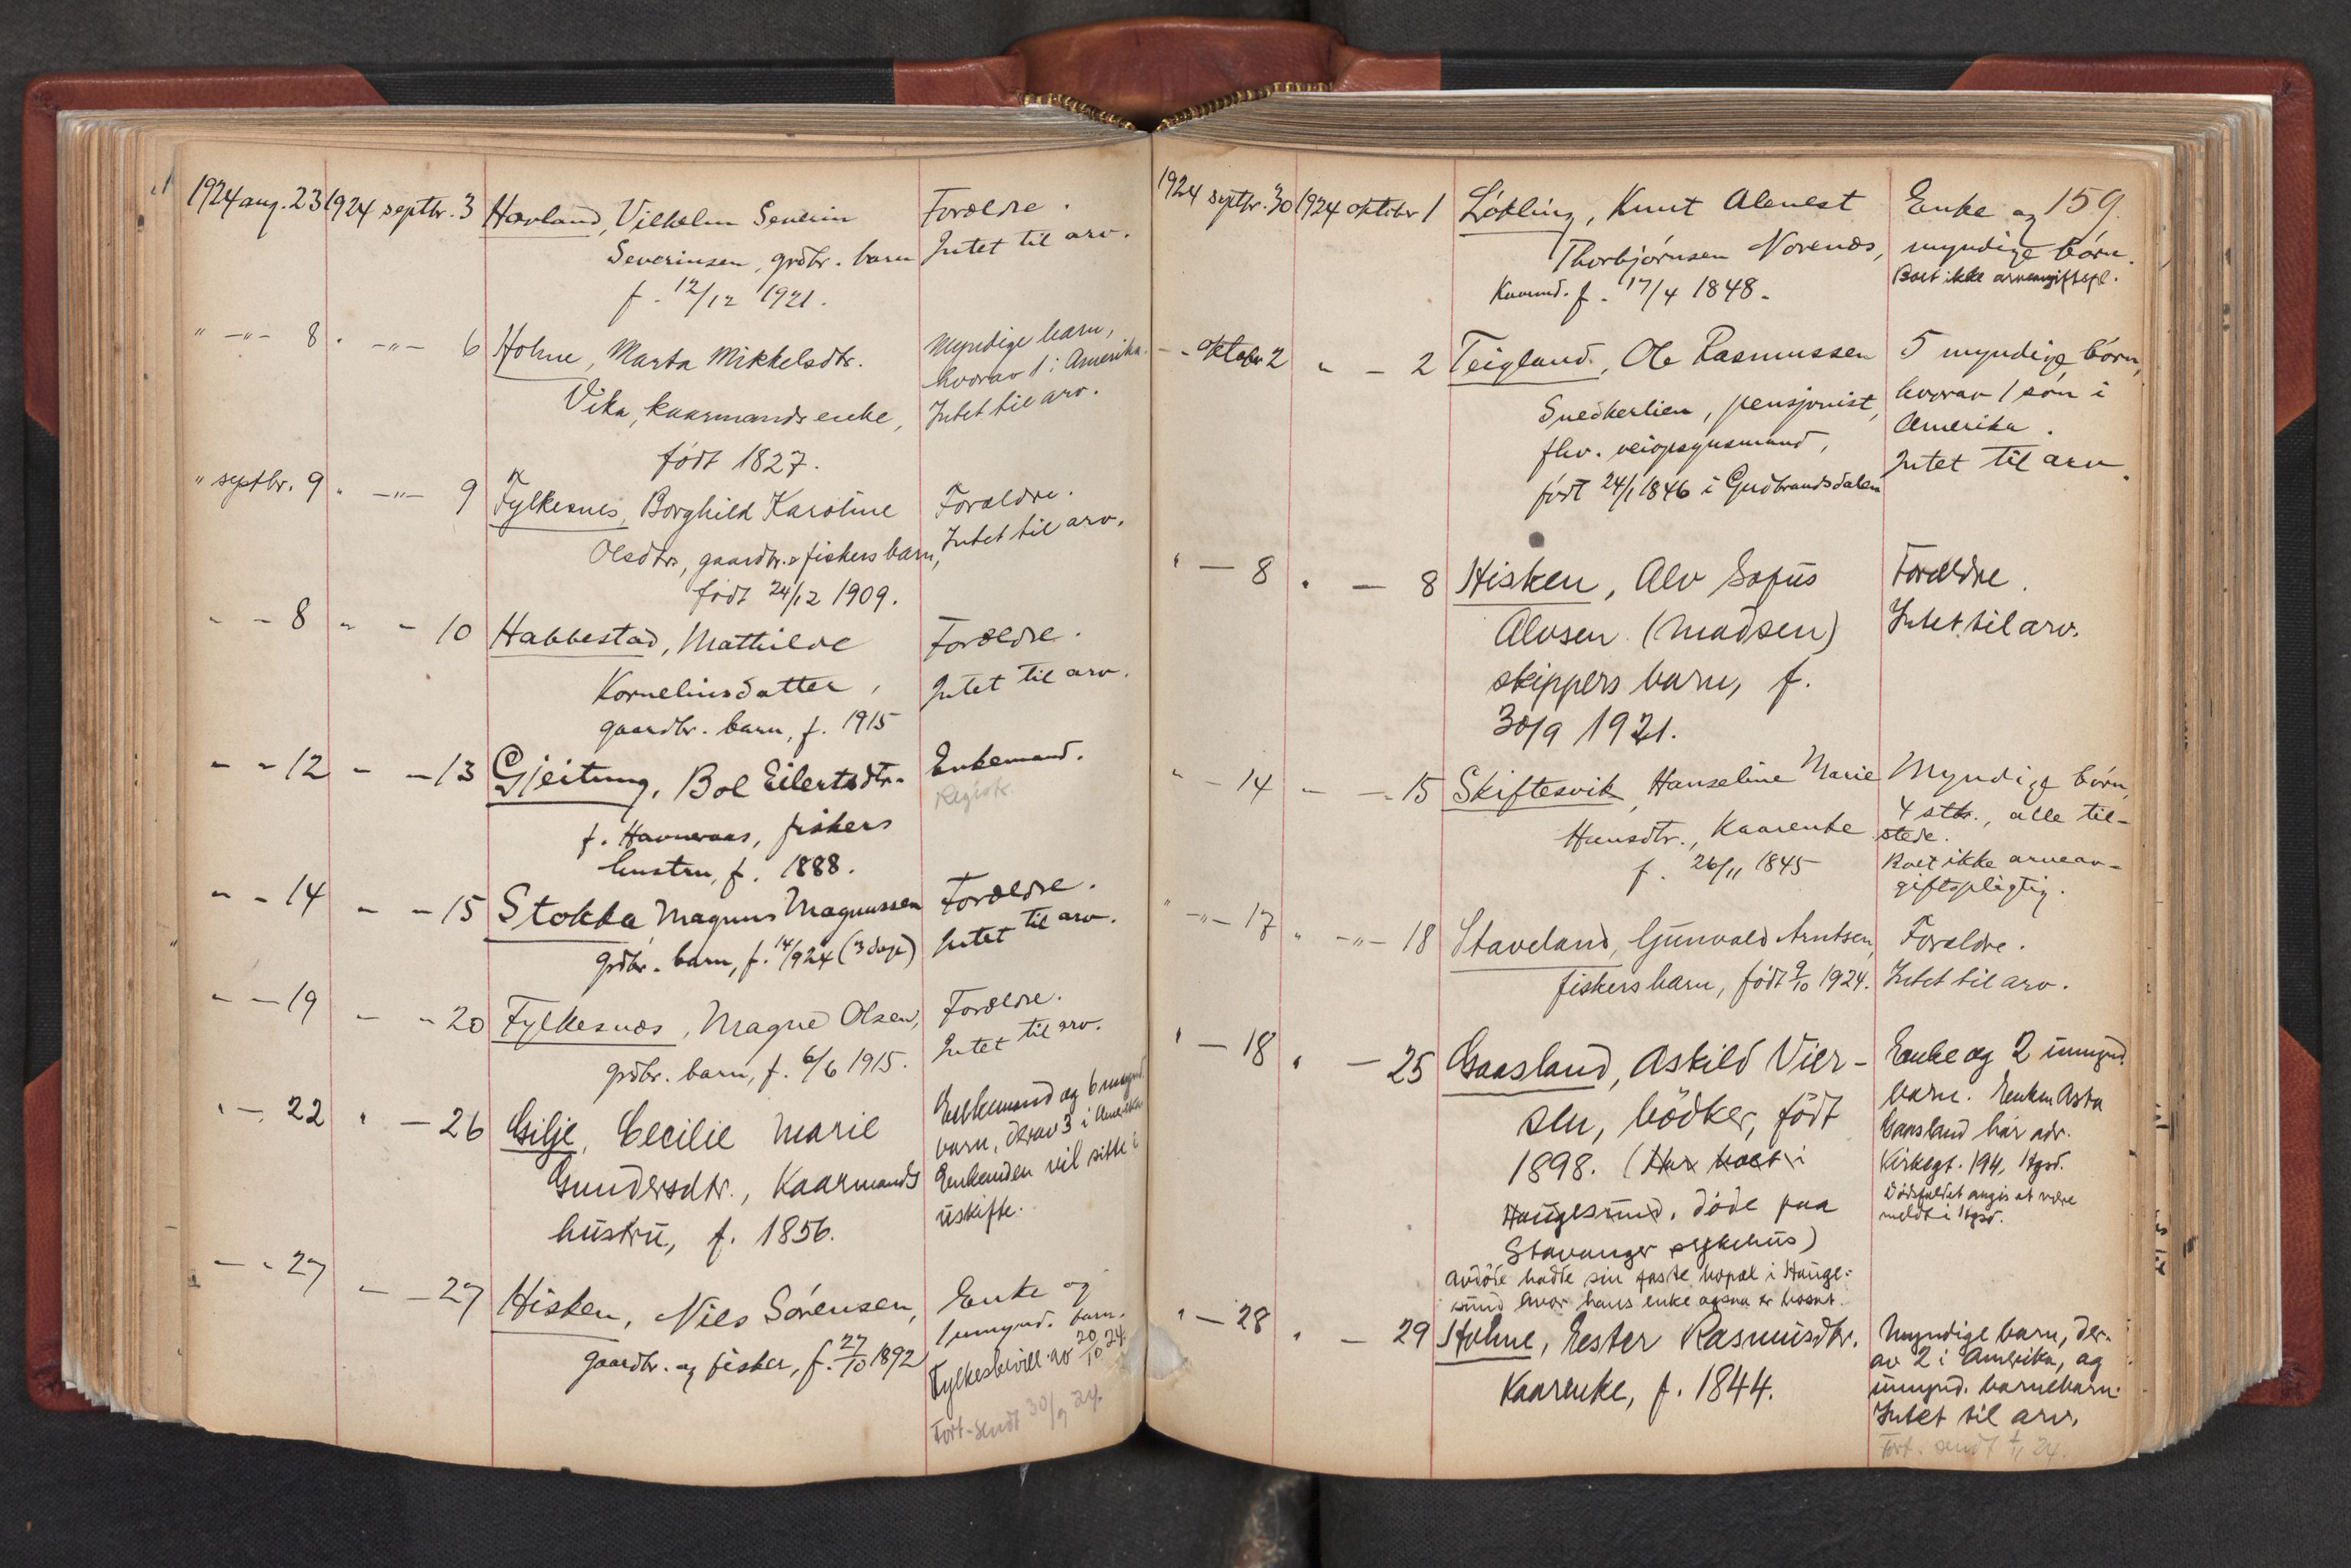 1924 aug. 23 1924 septbr. 3 Havland, Vilhelm Severin Forældre.
Severinsen, grdbr. barn Intet til arv.
f. 12/12 1921.
" -"- 8 " -"- 6 Hohne, Marta Mikkelsdtr. Myndige barn,
Vika, kaarmands enke, hvorav 1 i Amerika.
født 1827. Intet til arv.
" septbr. 9 " -"- 9 Fylkesnes, Borghild Karoline Forældre.
Olsdtr, gaardbr. & fiskers barn, Intet til arv.
født 24/12 1909.
" - 8 " - 10 Habbestad, Mathilde Forældre.
Kornelinsdatter, Intet til arv.
gaardbr. barn, f. 1915
" - 12 " - 13 Gjeitung, Bol Eilertsdtr. Enkemand.
f. Havneraas, fiskers Registr.
hustru, f. 1888.
" - 14 " - 15 Stokka Magnus Magnussen Forældre.
grdbr. barn, f. 14/9 24 (3 dage) Intet til arv.
" - 19 " - 20 Fylkesnes, Magne Olsen, Forældre.
grdbr. barn, f. 6/6 1915. Intet til arv.
" - 22 " - 26 Gilje, Cecilie Marie Enkemand og 6 mynd.
Gundersdtr., Kaarmands barn, derav 3 i Amerika
hustru, f. 1856. Enkemden vil sitte i
uskifte.
" - 27 " - 27 Hisken, Niels Sørensen, Enke og
gaardbr. og fisker, f. 27/10 1892 1 umynd. barn.
Fylkesbevill. av 20/10 24.
Fort. sendt 30/9 24.
159.
1924 septbr. 30 1924 oktober 1 Løkling, Knut Alenest Enke og
Thorbjørnsen Norenes, myndige børn.
Kaarmd. f. 17/4 1848. Boet ikke arveavgiftspl.
" oktober 2 " - 2 Teigland, Ole Rasmussen 5 myndige børn,
Snedkerlien, pensjonist, hvorav 1 søn i
fhv. veiopsynsmand, Amerika.
født 24/1 1846 i Gudbrandsdalen Intet til arv.
" - 8 " - 8 Hisken, Alv Sofus Forældre.
Alvsen (Madsen) Intet til arv.
skippers barn, f.
30/9 1921.
" - 14 " - 15 Skiftesvik, Hanseline Marie Myndige børn,
Hansdtr., Kaarenke 4 stk., alle til-
f. 26/11 1845 stede.
Boet ikke arveav-
giftspligtig.
" -"- 17 " -"- 18 Staveland, Gunvald Arntsen, Forældre.
fiskers barn, født 9/10 1924. Intet til arv.
" - 18 " - 25 Gaasland, Askild Vier- Enke og 2 umynd.
sen, bødker, født barn. Enken Asta
1898. (Har boet i Gaasland har adr.
Haugesund, døde paa Kirkegt. 194, Hgsd.
Stavanger sykehus) Dødsfaldet angis at være
meldt i Hgsd.
Avdøde hadde sin faste bopæl i Hauge-
sund hvor hans enke ogsaa er bosat.
" - 28 " - 29 Hohne, Ester Rasmusdtr. Myndige barn, der-
Kaarenke, f. 1844. av 2 i Amerika, og
umynd. barnebarn.
Intet til arv.
Fort. sendt 1/11 24.